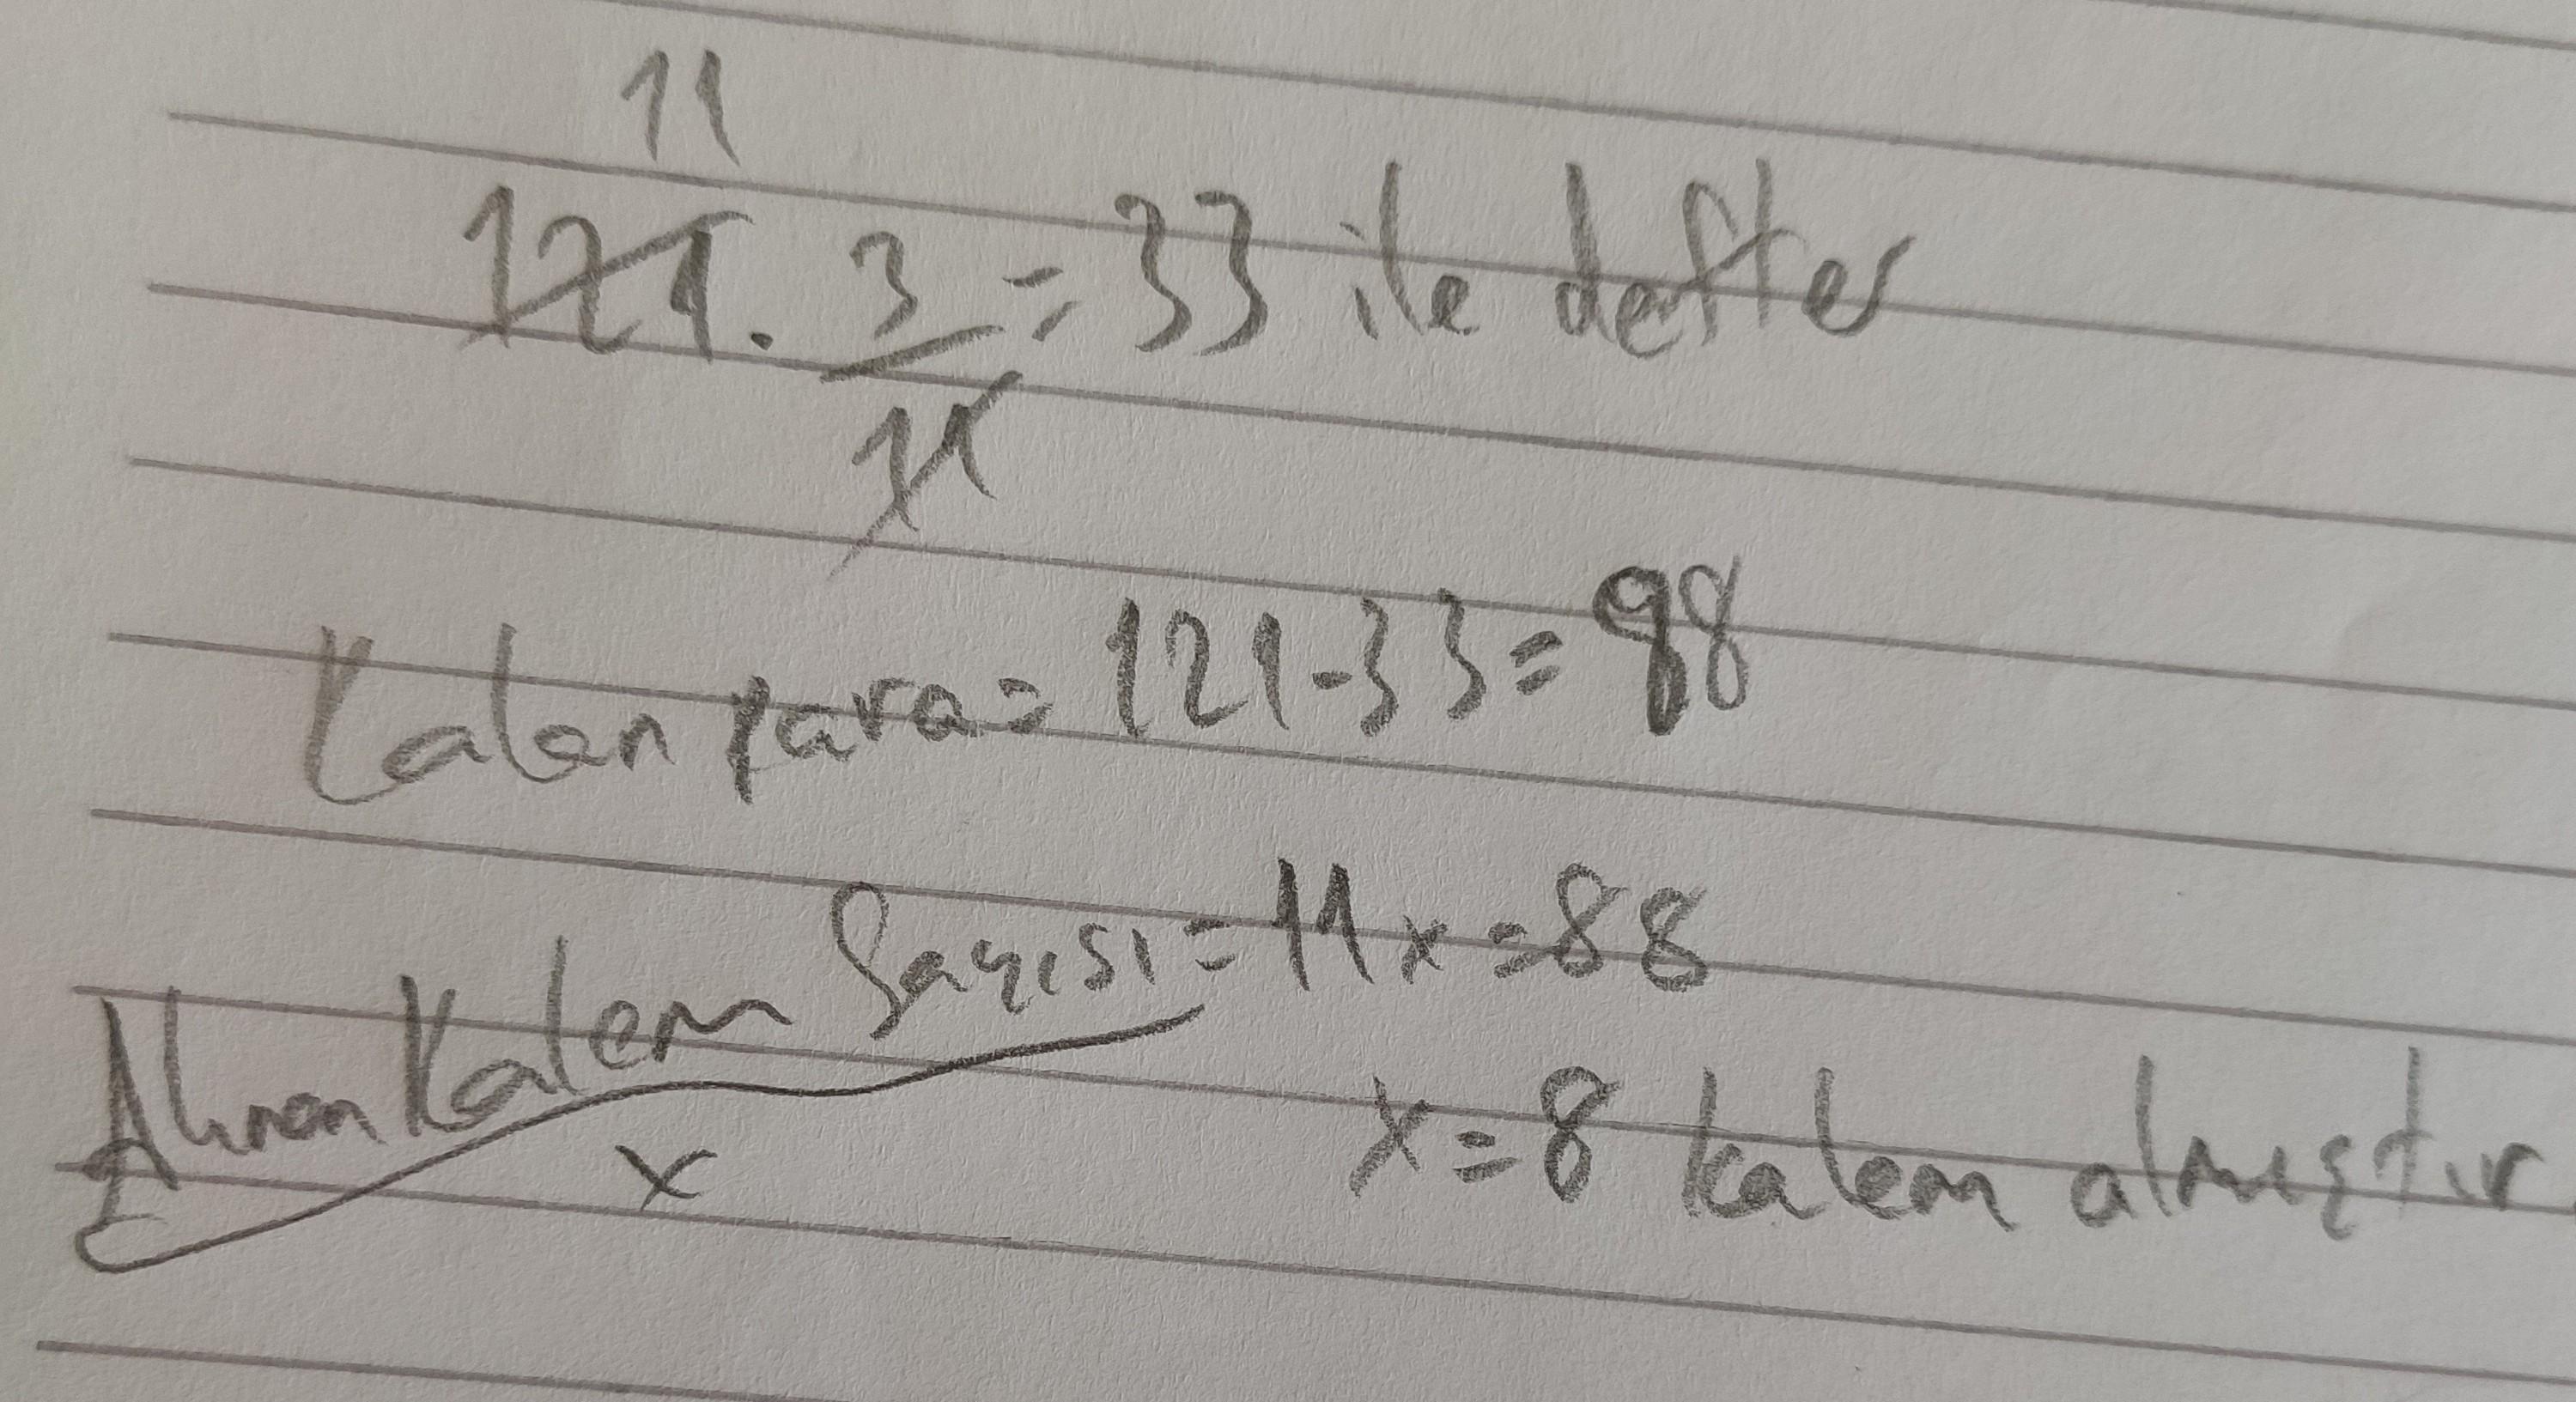 11
121 . 3/11 = 33 ile defter
Kalan para = 121 - 33 = 88
Alınan Kalem Sayısı = 11x = 88
x
x = 8 kalem almıştır